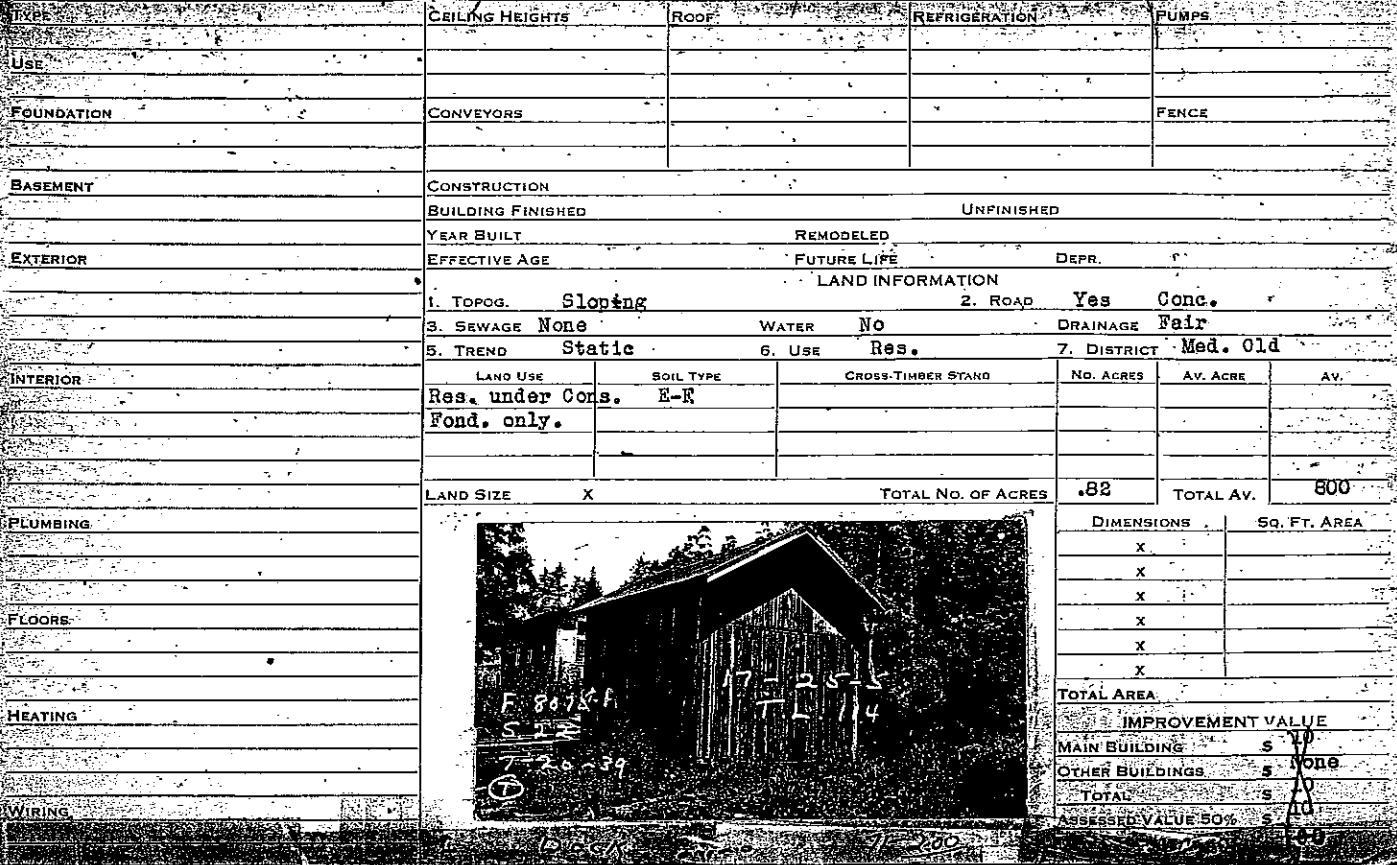 TYPE
USE
FOUNDATION
BASEMENT
EXTERIOR
INTERIOR
PLUMBING
FLOORS
HEATING
WIRING
CEILING HEIGHTS ROOF REFRIGERATION PUMPS
CONVEYORS FENCE
CONSTRUCTION
BUILDING FINISHED UNFINISHED
YEAR BUILT REMODELED
EFFECTIVE AGE FUTURE LIFE DEPR.
LAND INFORMATION
1. TOPOG. Sloping 2. ROAD Yes Conc.
3. SEWAGE None WATER No DRAINAGE Fair
5. TREND Static 6. USE Res. 7. DISTRICT Med. Old
LAND USE SOIL TYPE CROSS-TIMBER STAND NO. ACRES AV. ACRE AV.
Res. under Cons. E-E
Fond. only.
LAND SIZE X TOTAL NO. OF ACRES .82 TOTAL AV. 800
17-25-5
T L 114
S 22
7-20-39
7
DIMENSIONS SQ. FT. AREA
X
X
X
X
X
X
TOTAL AREA
IMPROVEMENT VALUE
MAIN BUILDING $
OTHER BUILDINGS $ None
TOTAL $
ASSESSED VALUE 50% $